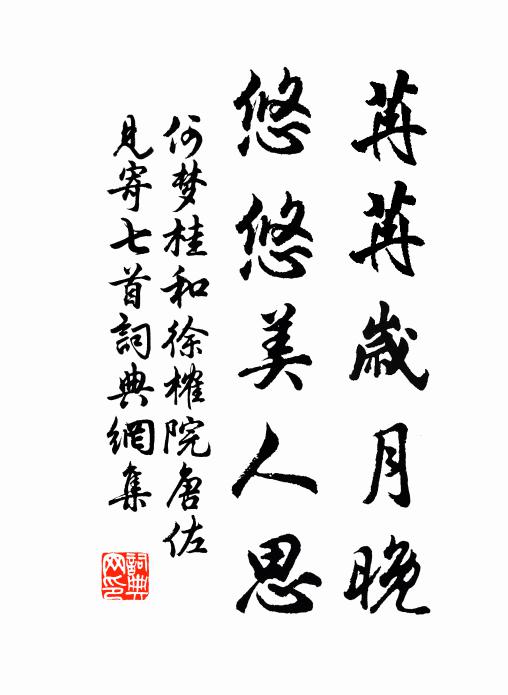 苒苒歲月晚
悠悠美人思
何梦桂和徐榷院唐佐
見寄七首詞典網集
詞典网印